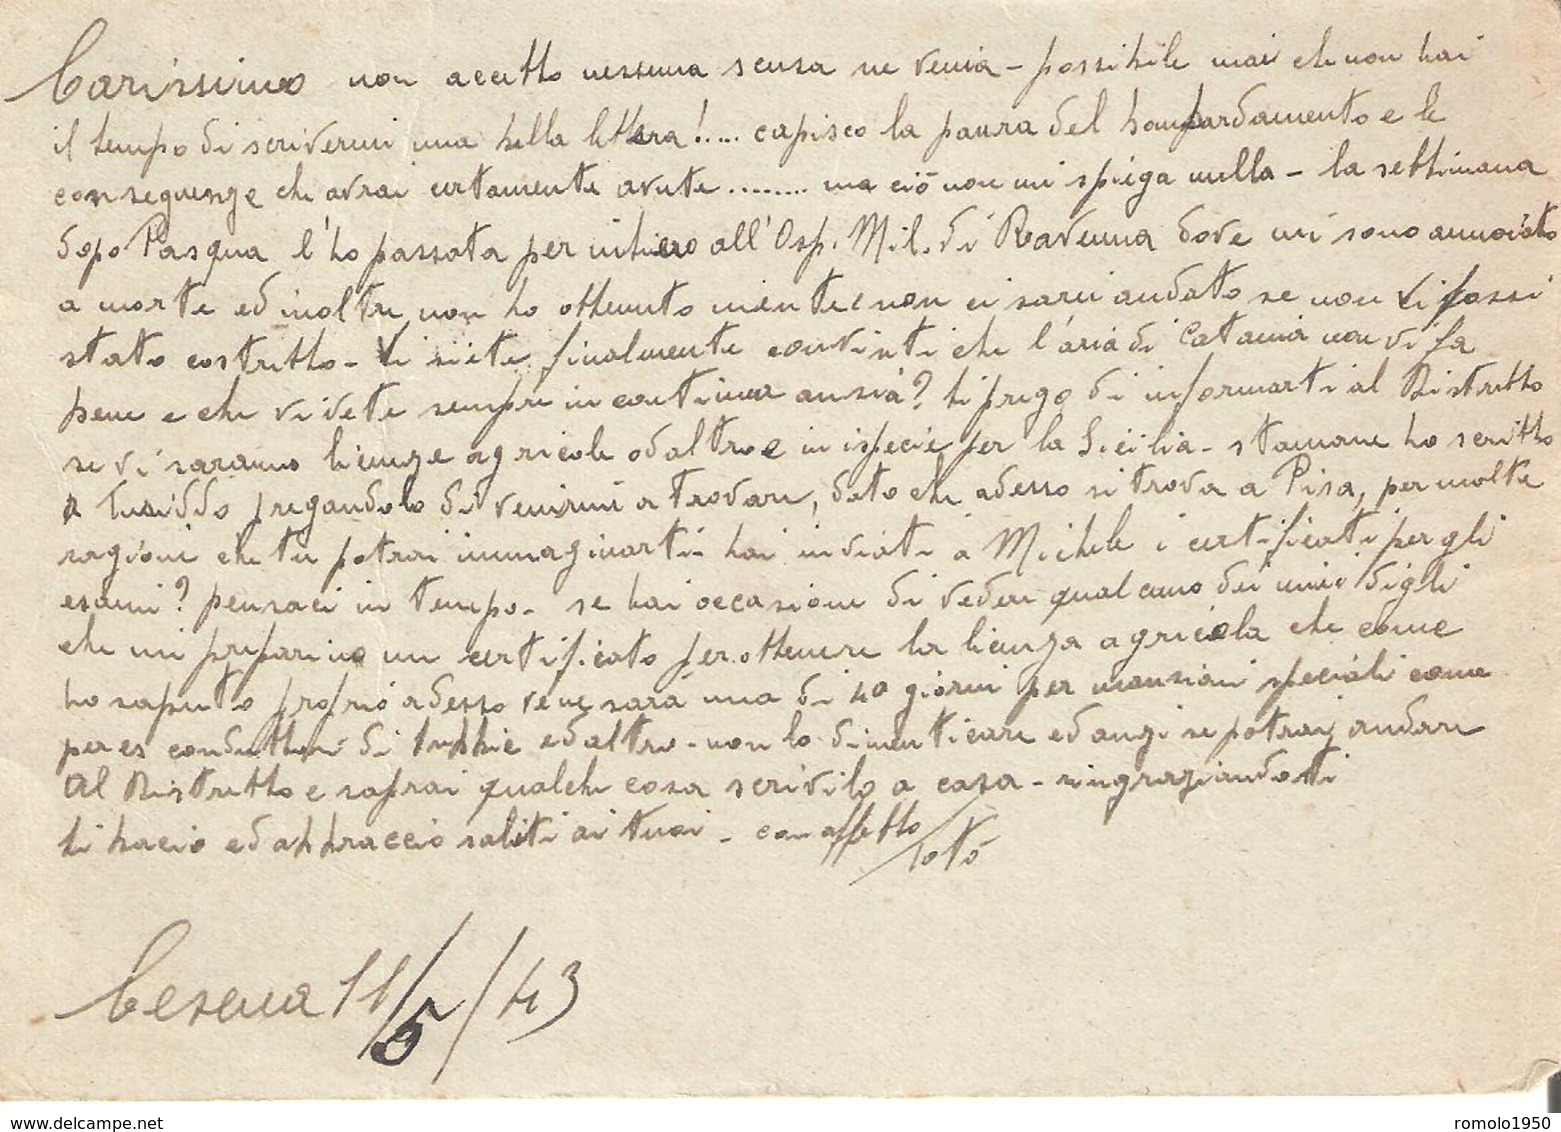 Carissimo non accetto nessuna scusa ne venia - possibile mai che non hai
il tempo di scrivermi una bella lettera!.... capisco la paura del bompardamento e le
conseguenze che avrai certamente avute ........ ma ciò non mi spiega nulla - la settimana
dopo Pasqua l'ho passata per intiero all'Osp. Mil. di Ravenna dove mi sono annoiato
a morte ed inoltre non ho ottenuto niente e non ci sarei andato se non vi fossi
stato costretto - Vi siete finalmente convinti che l'aria di Catania non vi fa
bene e che vivete sempre in continua ansia? ti prego di informarti al Distretto
se vi saranno licenze agricole od altro e in ispecie per la Sicilia - stamane ho scritto
a Turiddo pregandolo di venirmi a trovare, dato che adesso si trova a Pisa, per molte
ragioni che tu potrai immaginarti - hai inviati a Michele i certificati per gli
esami? pensaci in tempo - se hai occasione di vedere qualcuno dei miei digli
che mi preparino un certificato per ottenere la licenza agricola che come
ho saputo proprio adesso ve ne sarà una di 40 giorni per mansioni speciali come
per es conduttori di trebbie ed altro - non lo dimenticare ed anzi se potrai andare
al Distretto e saprai qualche cosa scrivilo a casa - ringraziandoti
ti bacio ed abbraccio saluti ai tuoi - con affetto
Totò
Cesena 11/5/43
delcampe.net
romolo1950